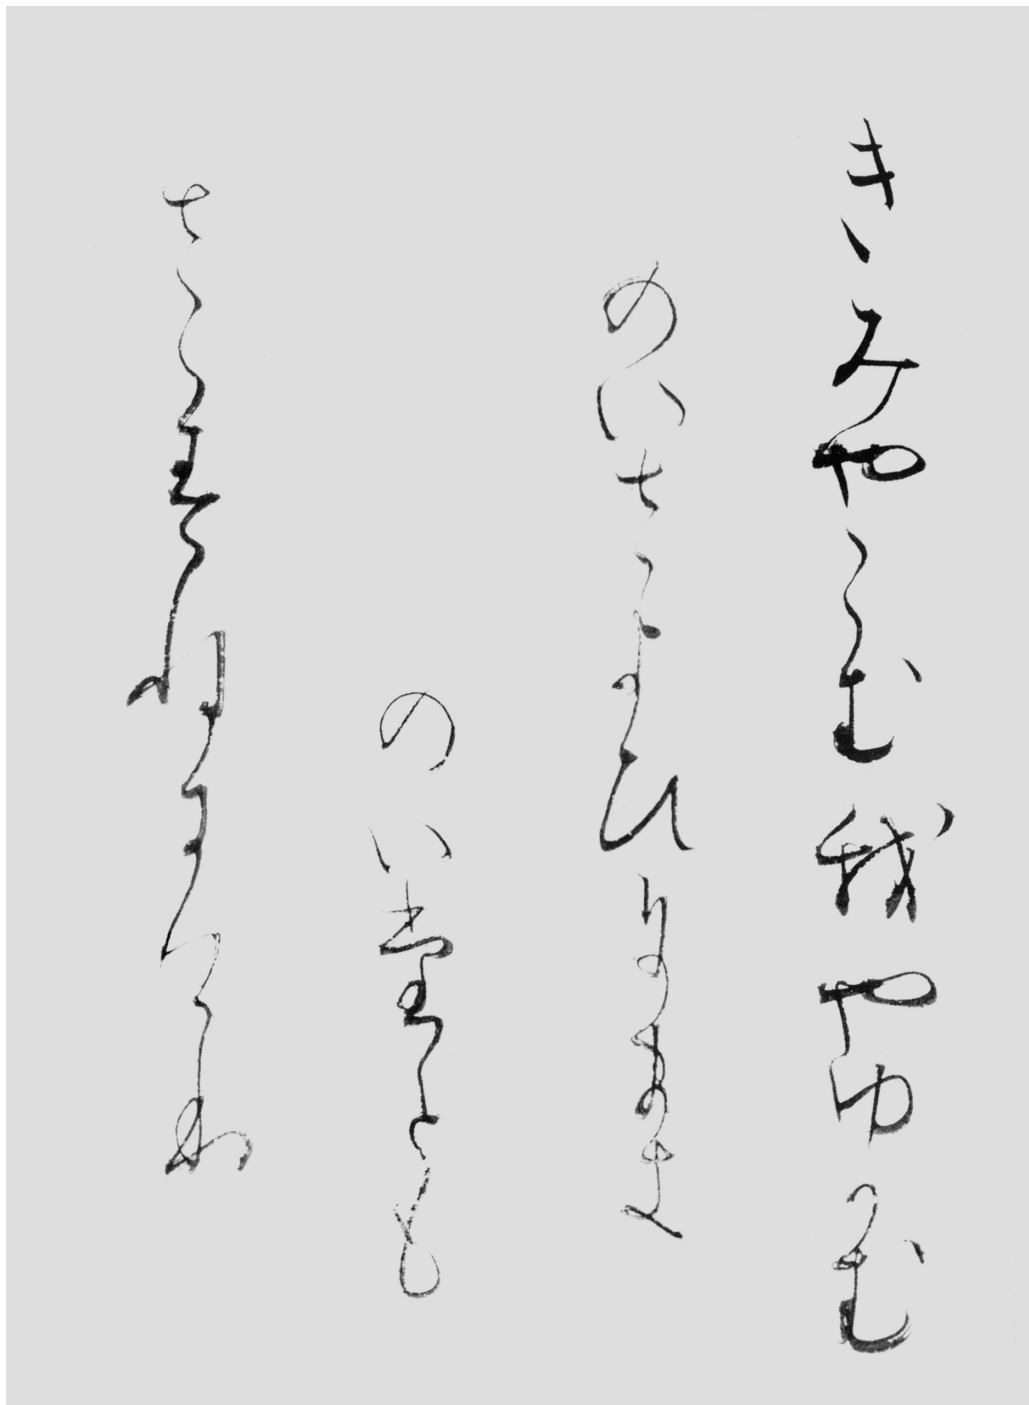 きみやこむ我やゆかむ
のいさよひにまき
のいたとも
さゝすねにけり